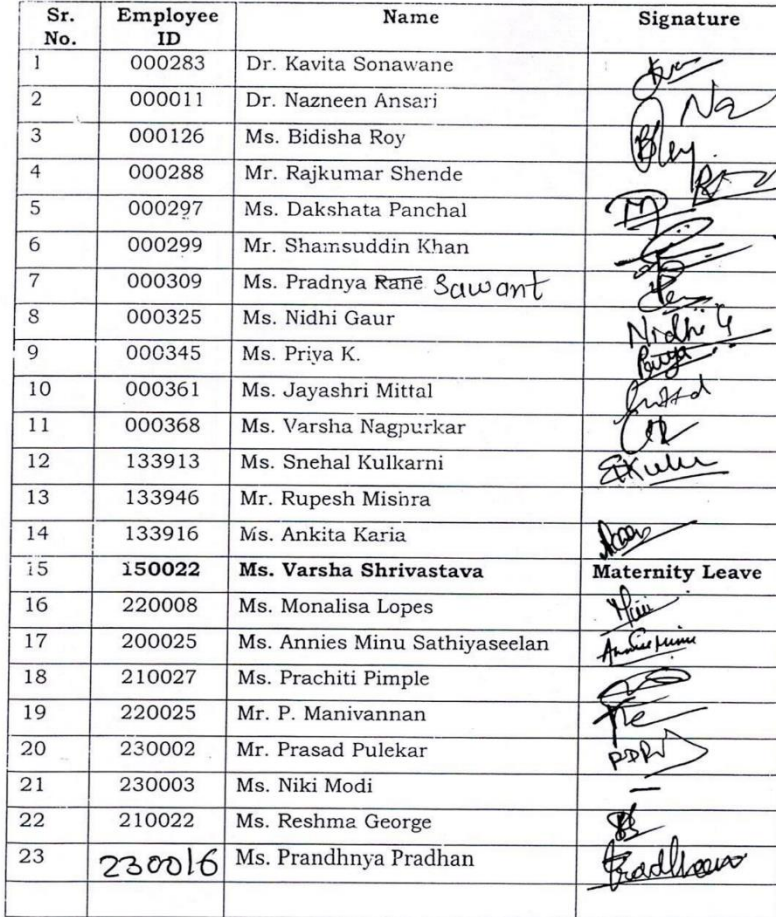 Sr. No. Employee ID Name Signature
1 000283 Dr. Kavita Sonawane
2 000011 Dr. Nazneen Ansari Na
3 000126 Ms. Bidisha Roy
4 000288 Mr. Rajkumar Shende
5 000297 Ms. Dakshata Panchal
6 000299 Mr. Shamsuddin Khan
7 000309 Ms. Pradnya Rane Sawant
8 000325 Ms. Nidhi Gaur Nidhi G
9 000345 Ms. Priya K. Priya
10 000361 Ms. Jayashri Mittal
11 000368 Ms. Varsha Nagpurkar
12 133913 Ms. Snehal Kulkarni
13 133946 Mr. Rupesh Mishra
14 133916 Ms. Ankita Karia
15 150022 Ms. Varsha Shrivastava Maternity Leave
16 220008 Ms. Monalisa Lopes
17 200025 Ms. Annies Minu Sathiyaseelan
18 210027 Ms. Prachiti Pimple
19 220025 Mr. P. Manivannan
20 230002 Mr. Prasad Pulekar
21 230003 Ms. Niki Modi –
22 210022 Ms. Reshma George
23 230016 Ms. Prandhnya Pradhan